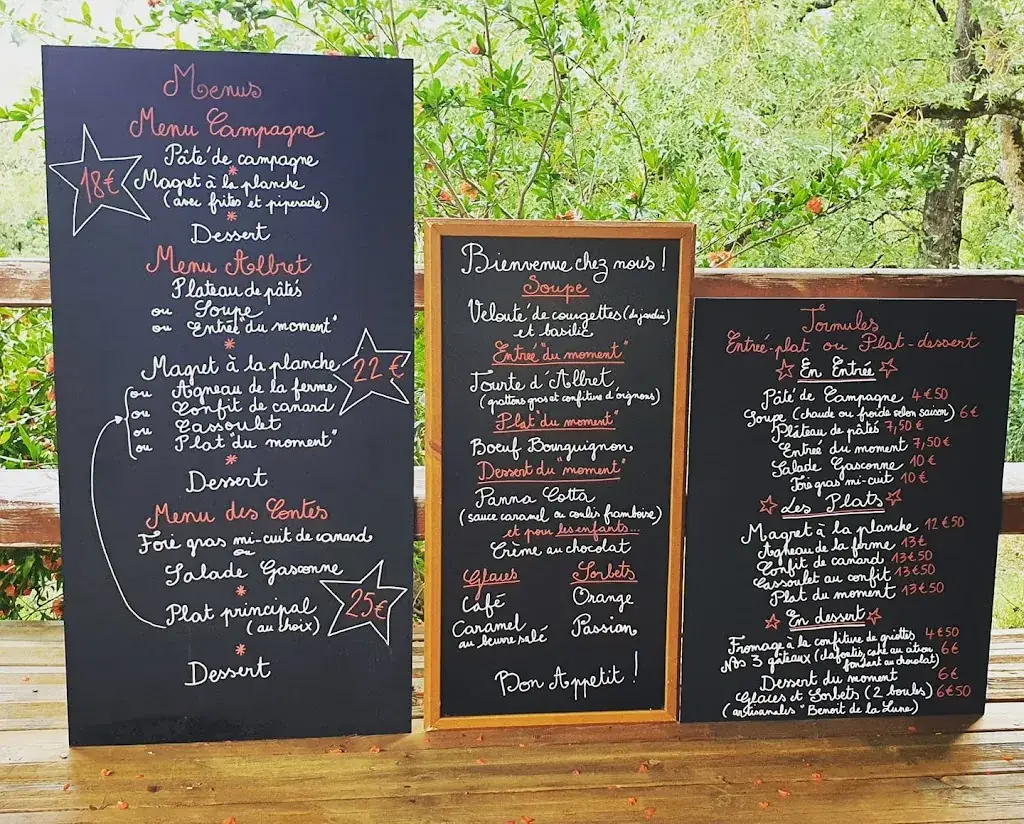 Menus
Menu Campagne
Pâté de campagne
*
18€
Magret à la planche
(avec frites et piperade)
*
Dessert
Menu Albret
Plateau de pâtés
ou Soupe
ou Entrée "du moment"
*
Magret à la planche
22€
ou Agneau de la ferme
ou Confit de canard
ou Cassoulet
ou Plat "du moment"
*
Dessert
Menu des Contes
Foie gras mi-cuit de canard
ou
Salade Gasconne
*
Plat principal
(au choix)
25€
*
Dessert
Bienvenue chez nous !
Soupe
Velouté de courgettes (du jardin)
et basilic
Entrée "du moment"
Tourte d'Albret
(grattons gras et confiture d'oignons)
Plat "du moment"
Boeuf Bourguignon
Dessert du "moment"
Panna Cotta
(sauce caramel ou coulis framboise)
et pour les enfants...
Crème au chocolat
Glaces
Café
Caramel
au beurre salé
Sorbets
Orange
Passion
Bon Appetit !
Formules
Entrée-plat ou Plat-dessert
En Entrée
Pâté de Campagne 4€50
Soupe (chaude ou froide selon saison) 6€
Plateau de pâtés 7,50€
Entrée du moment 7,50€
Salade Gasconne 10€
Foie gras mi-cuit 10€
Les Plats
Magret à la planche 12€50
Agneau de la ferme 13€
Confit de canard 13€50
Cassoulet au confit 13€50
Plat du moment 13€50
En dessert
Fromage à la confiture de griottes 4€50
Nos 3 gâteaux (clafoutis, cake au citron 6€
fondant au chocolat)
Dessert du moment 6€
Glaces et Sorbets (2 boules) 6€50
(artisanales "Benoit de la Lune)